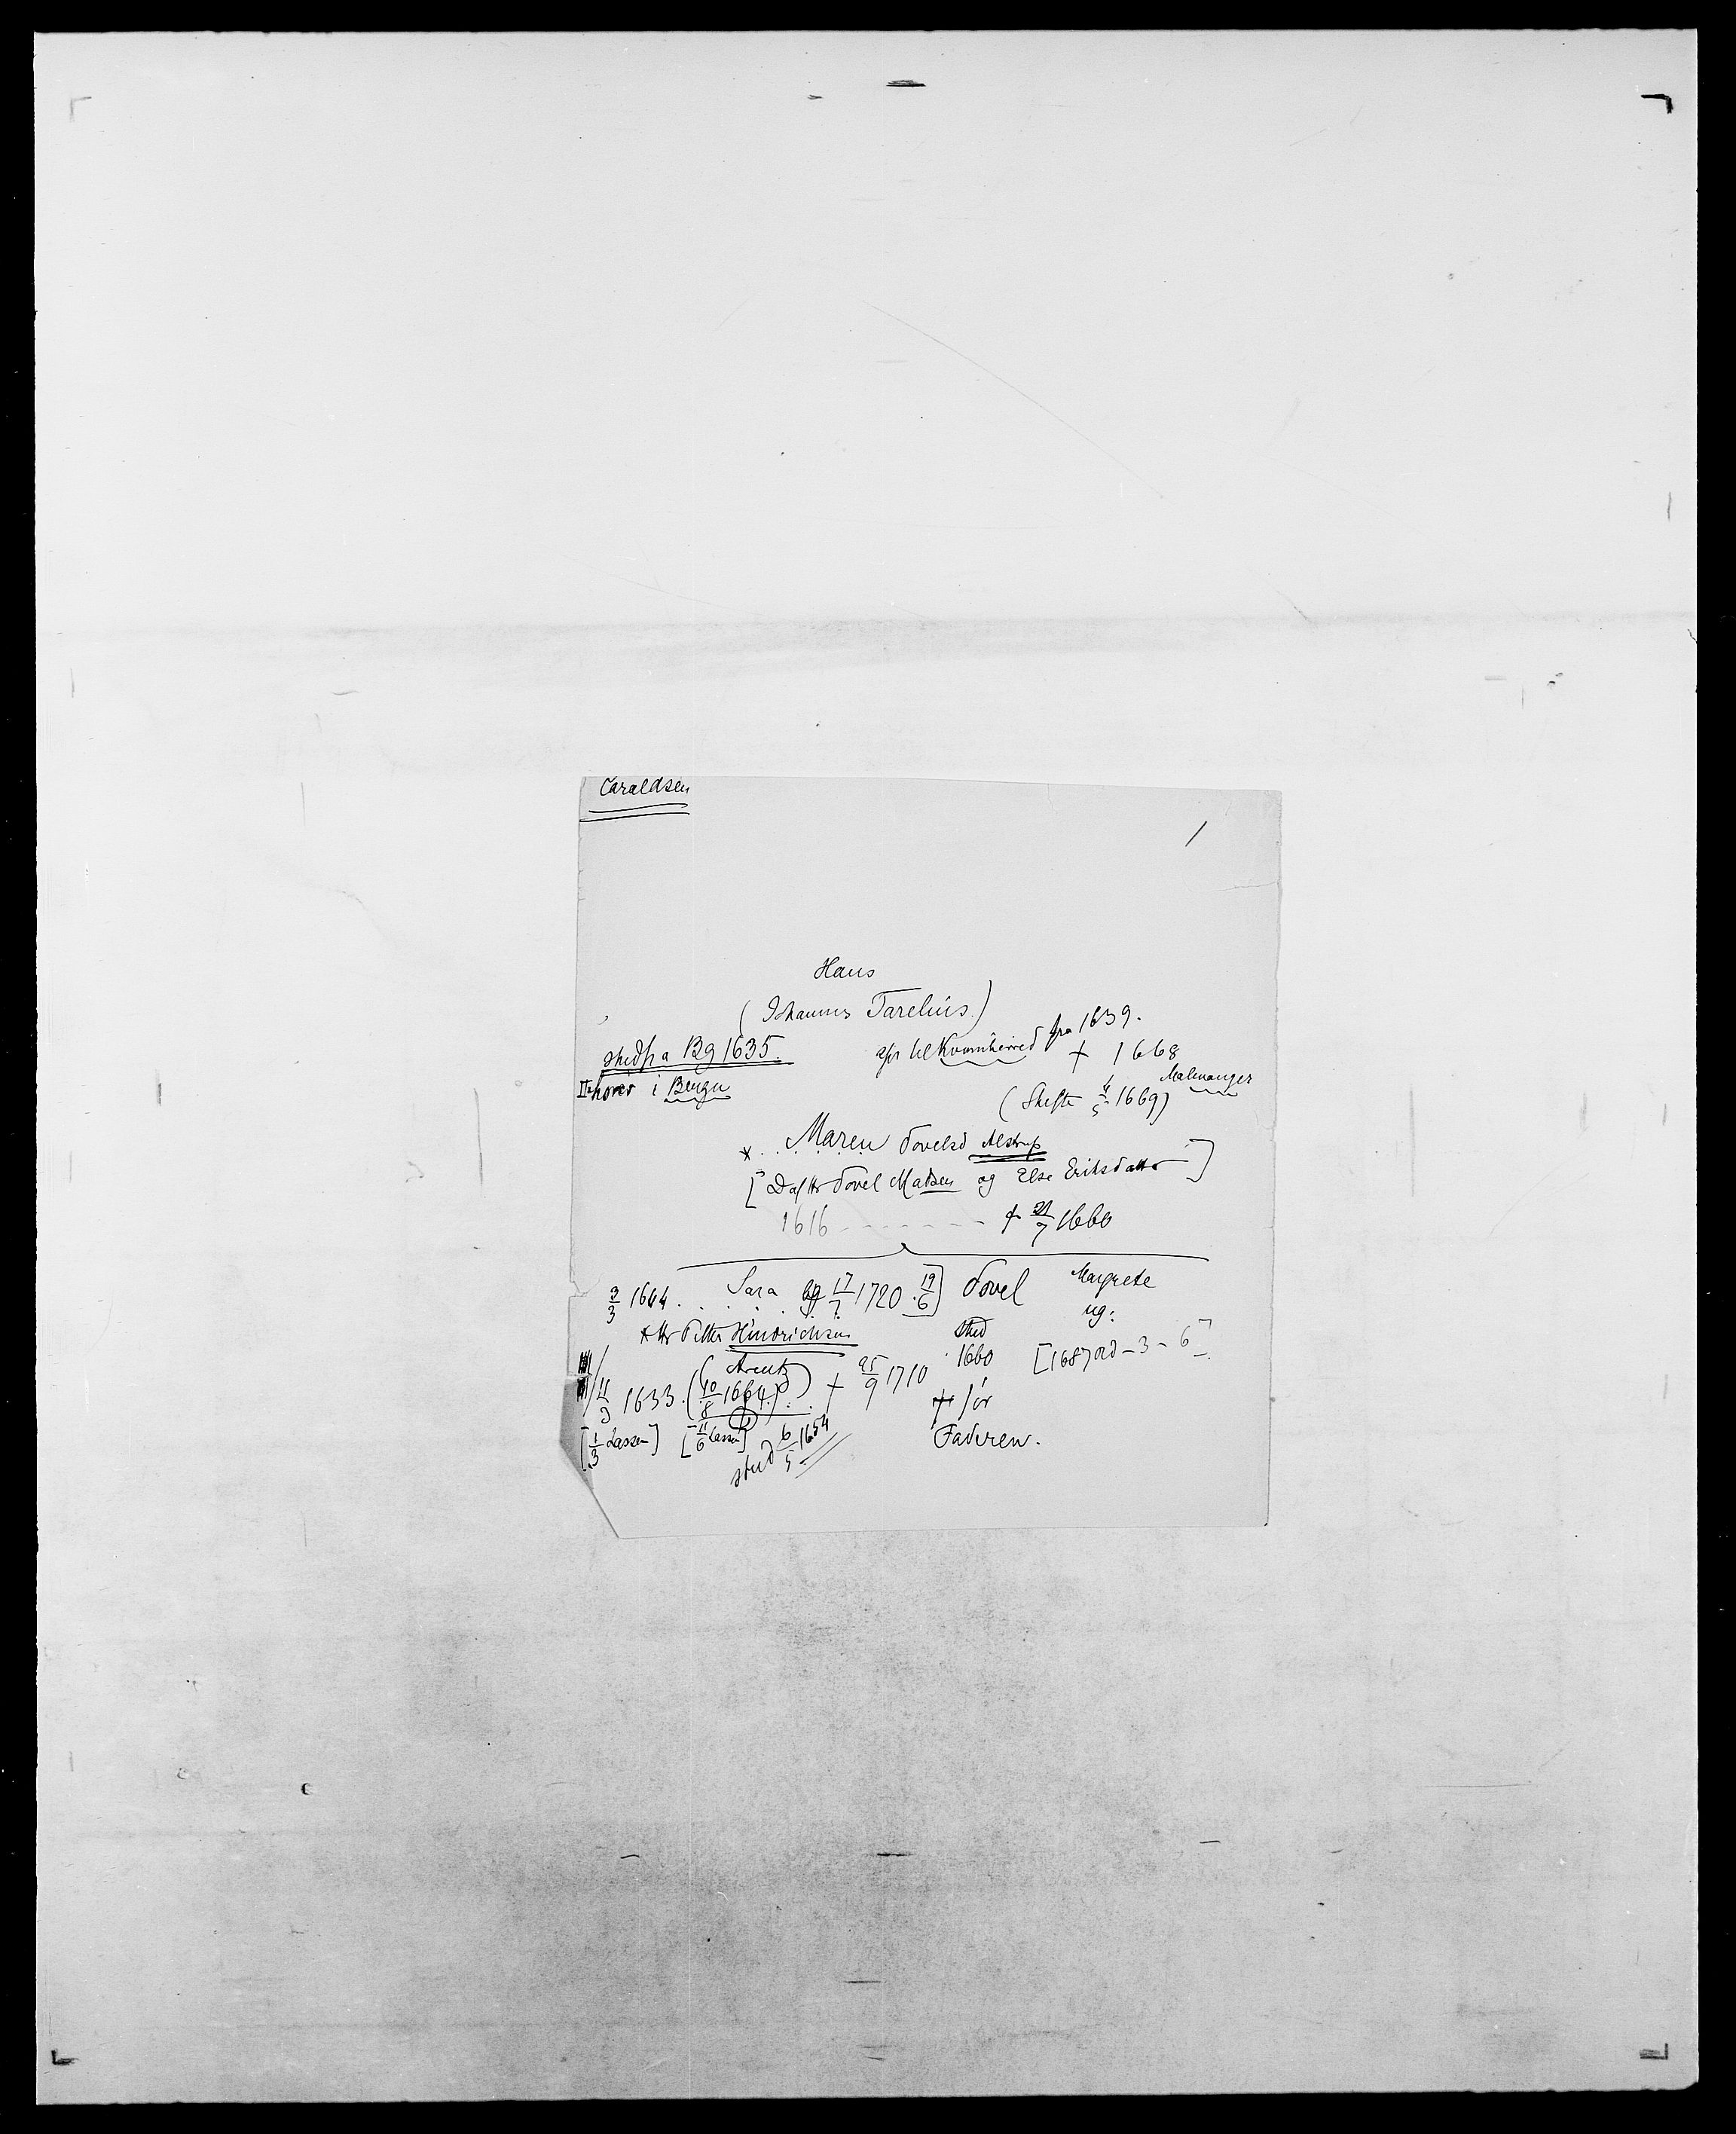 Caraldsen
1
Hans
(Johannes Tarelius.)
stud fra Bg 1635.
spr til Kvinnherred fra 1639.
† 1668
hører i Bergen
Malmanger
(Skifte 4/5 1669)
* . . Maren Povelsd Alstrup
[Datter Povel Madsen og Else Eriksdatter]
1616 - - - - - - - † 21/7 1660
3/3 1644 . . . . Sara bg 17/7 1720 . 19/6]
Povel
Margrete
ug:
Petter Hindrichsen
stud
1660
[1687 - 3 - 6].
(Arent)
1633. (10/8 1664.) . . † 25/9 1710
† før
Faderen.
[1/3 Lassen] [11/6 Lassen]
stud 6/5 1654